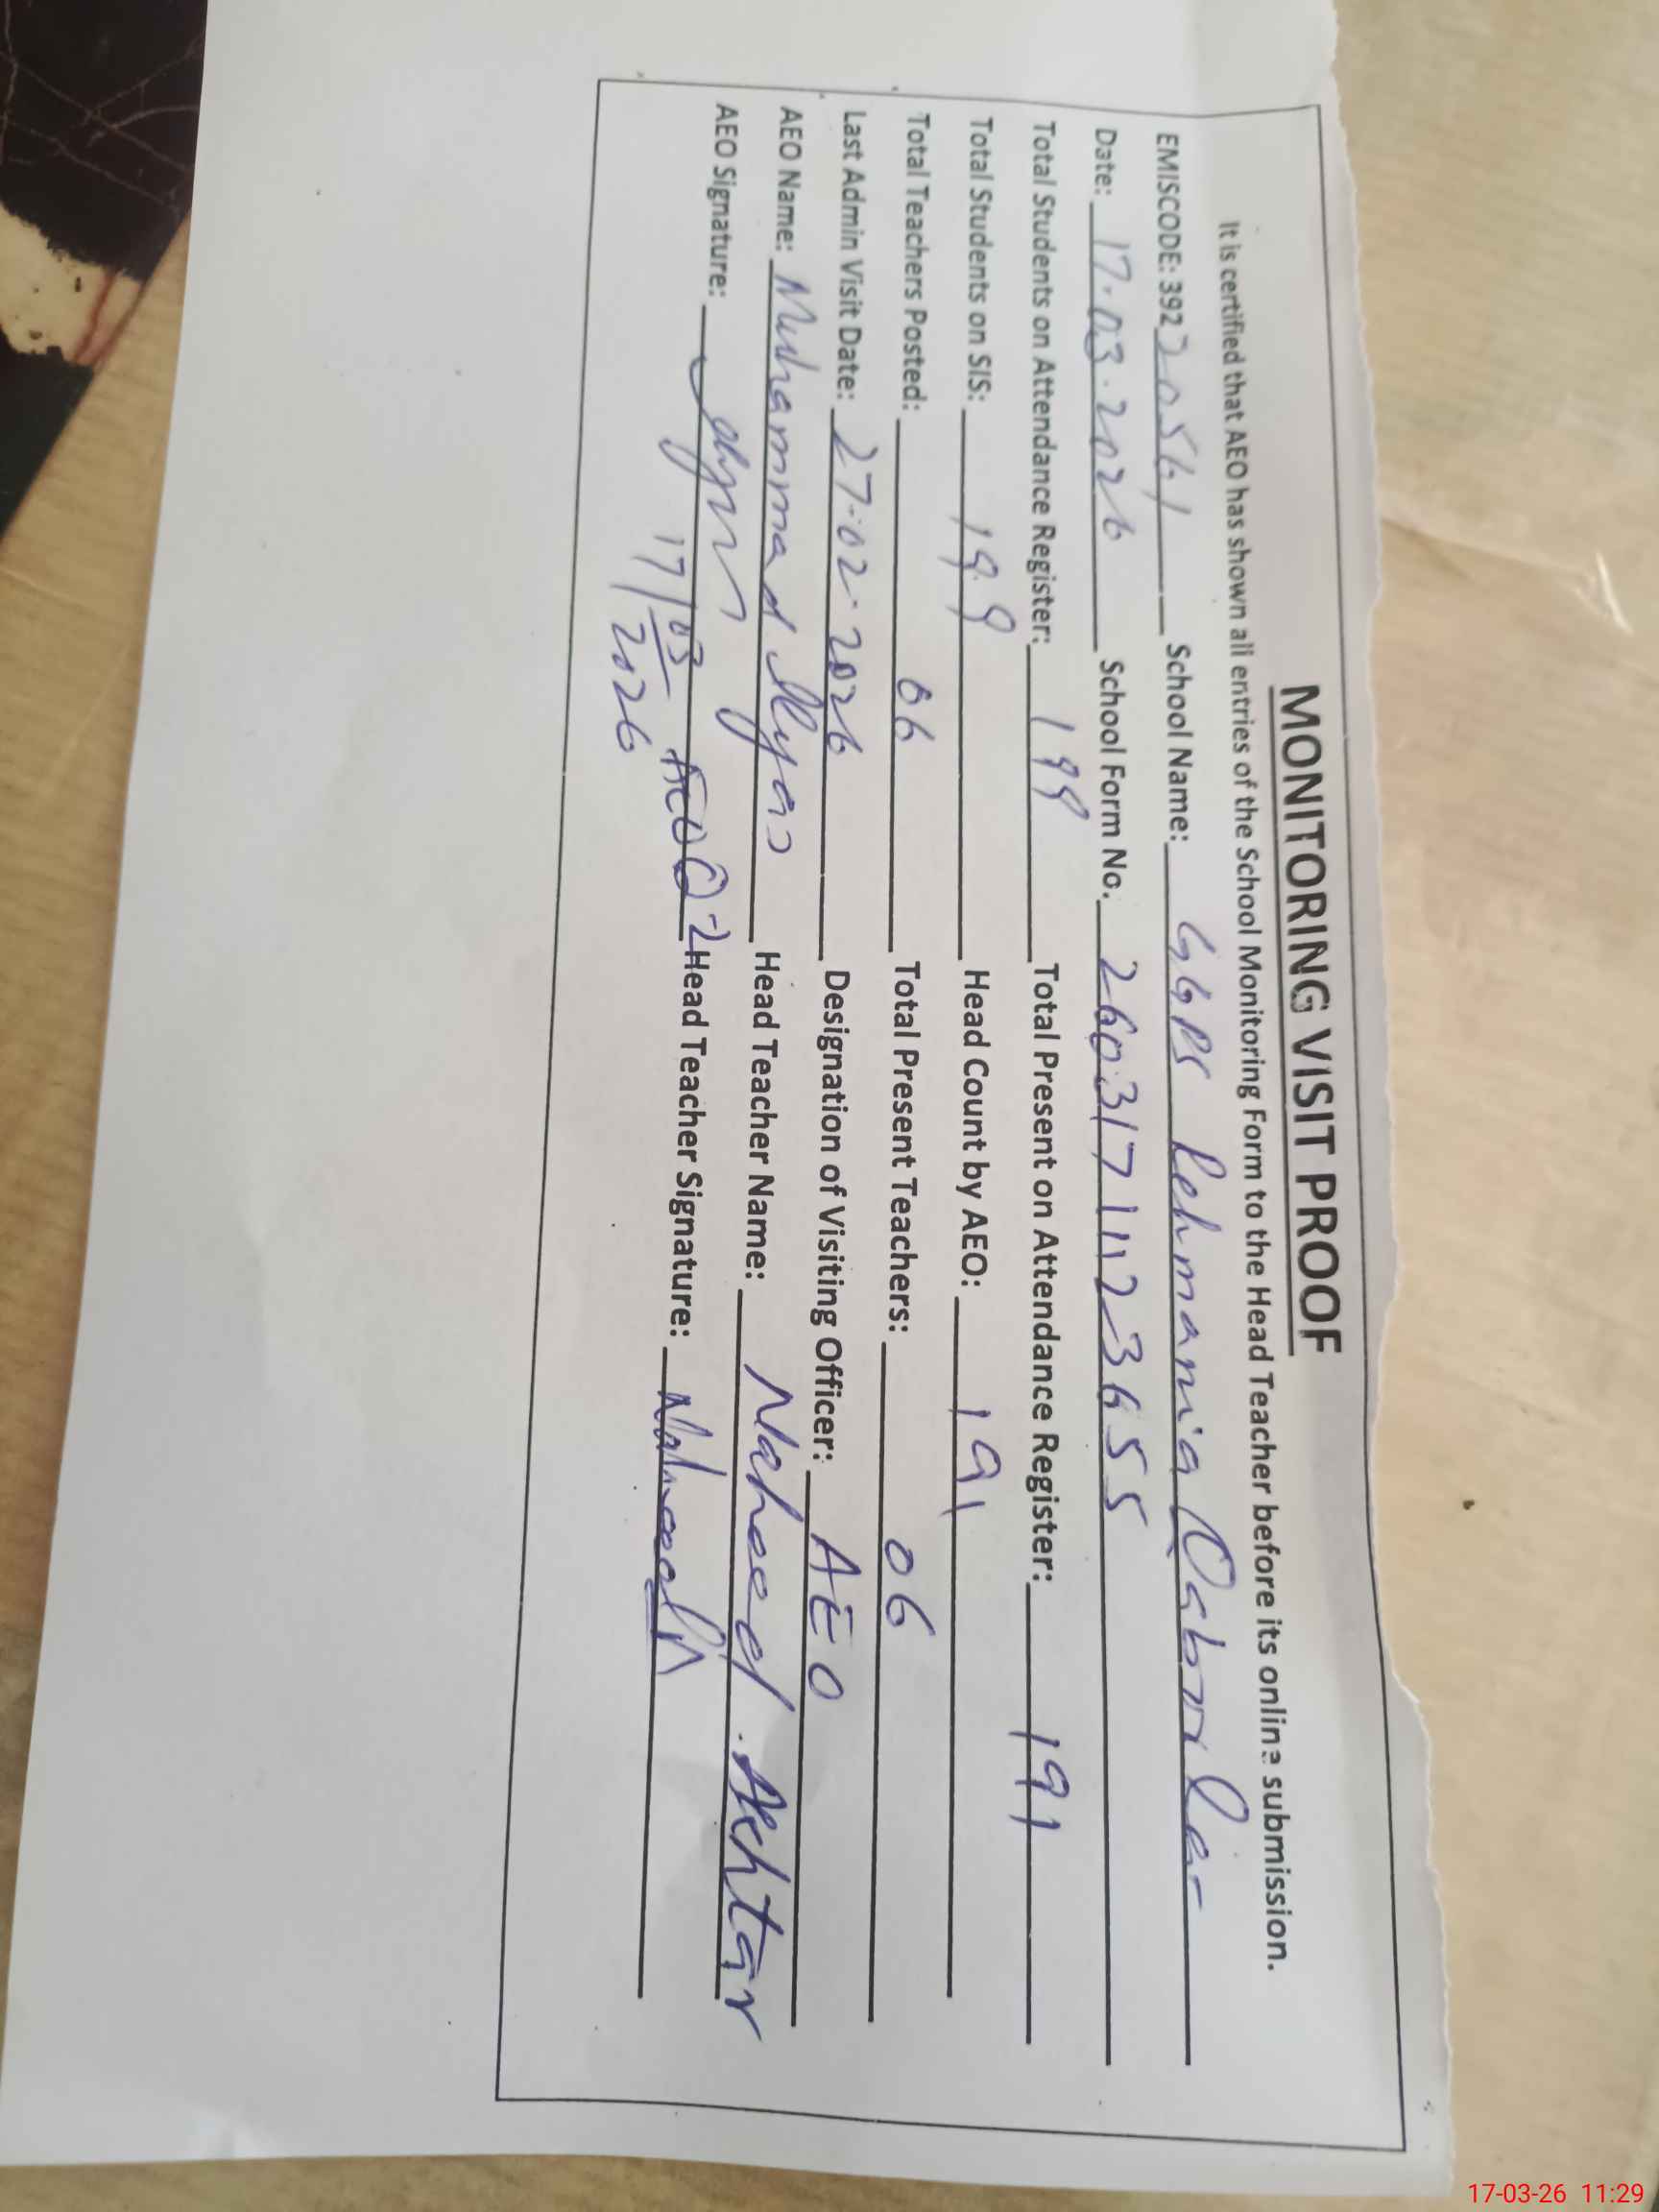 MONITORING VISIT PROOF
It is certified that AEO has shown all entries of the School Monitoring Form to the Head Teacher before its online submission.
EMISCODE: 39220561 School Name: GGPS Rehmania
Date: 17.03.2026 School Form No. 26031711123655
Total Students on Attendance Register: 199 Total Present on Attendance Register: 191
Total Students on SIS: 199 Head Count by AEO: 191
Total Teachers Posted: 06 Total Present Teachers: 06
Last Admin Visit Date: 27.02.2026 Designation of Visiting Officer: AEO
AEO Name: Muhammad Ilyas Head Teacher Name: Naheed Akhtar
AEO Signature: Head Teacher Signature: Naheed
17/03/2026
17-03-26 11:29